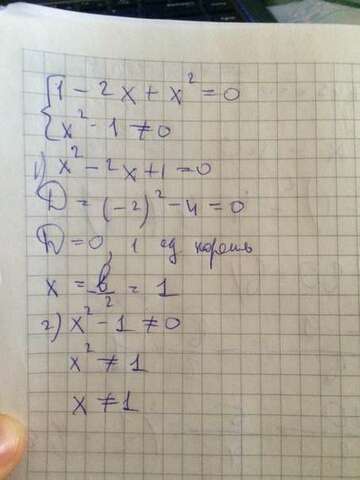 { 1 - 2x + x² = 0
x² - 1 ≠ 0
1) x² - 2x + 1 = 0
D = (-2)² - 4 = 0
D = 0, 1 ед корень
x = в/2 = 1
2) x² - 1 ≠ 0
x² ≠ 1
x ≠ 1